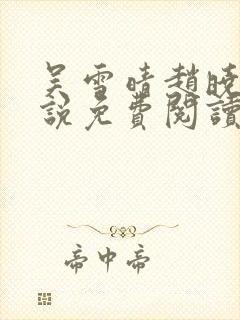 吴雪晴趙曉
說免費閱讀
帝中帝